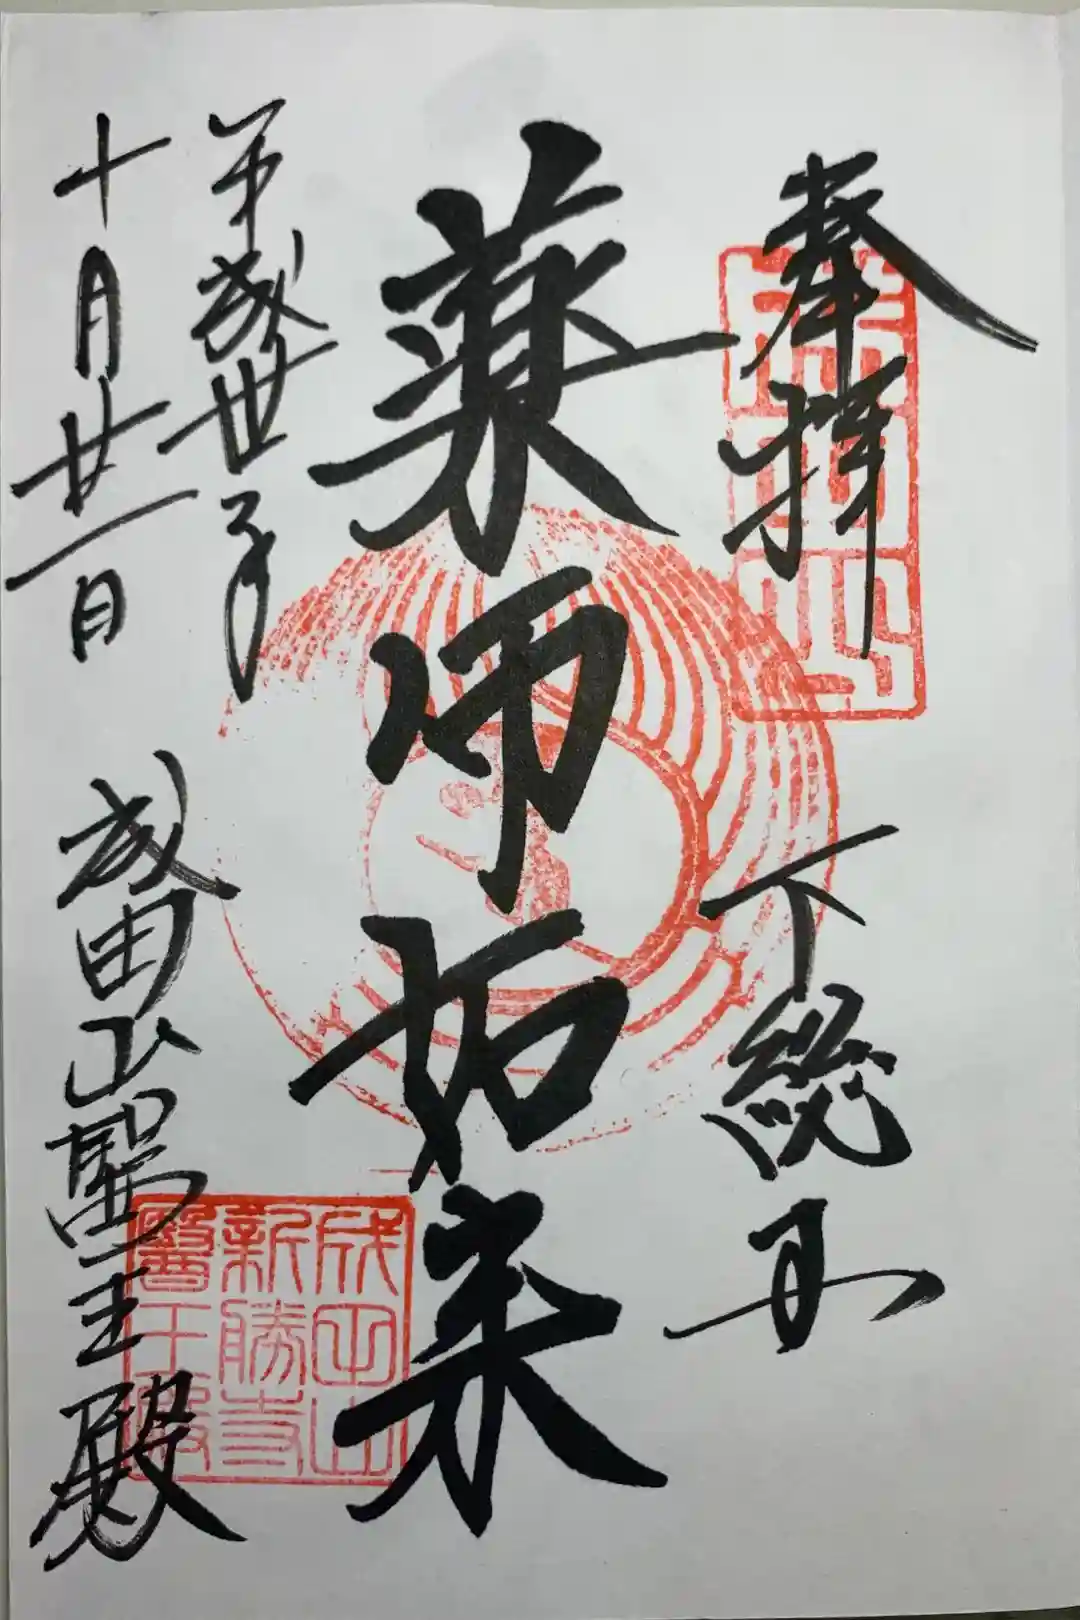 奉拝
下総国
薬師如来
平成廿年
十月廿一日
成田山醫王殿
成田山
新勝寺
醫王殿
成田山